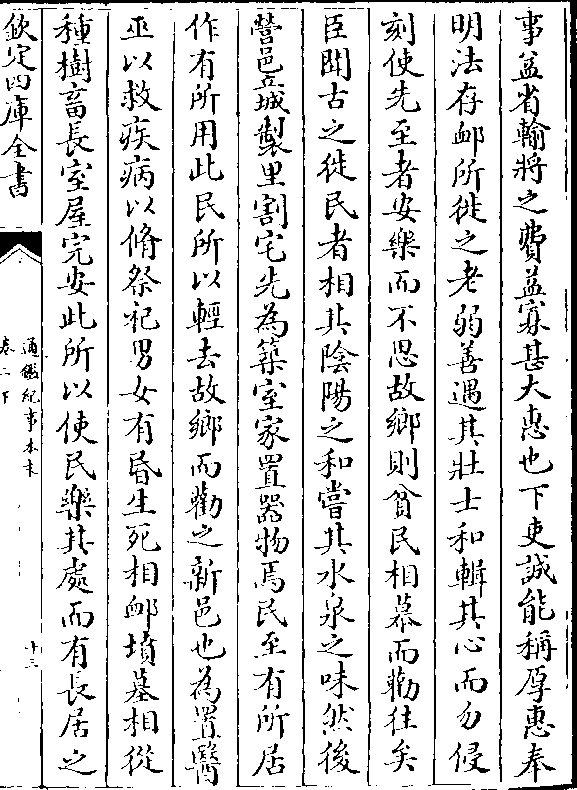 事益省輸將之費益寡甚大惠也下吏誠能稱厚惠奉
明法存䘏所徙之老弱善遇其壯士和輯其心而勿侵
刻使先至者安樂而不思故鄉則貧民相慕而勸往矣
臣聞古之徙民者相其陰陽之和嘗其水泉之味然後
營邑立城製里割宅先為築室家置器物焉民至有所居
作有所用此民所以輕去故鄉而勸之新邑也為置醫
巫以救疾病以脩祭祀男女有昏生死相䘏墳墓相從
種樹畜長室屋完安此所以使民樂其處而有長居之
欽定四庫全書
通鑑紀事本末
卷二下
十三